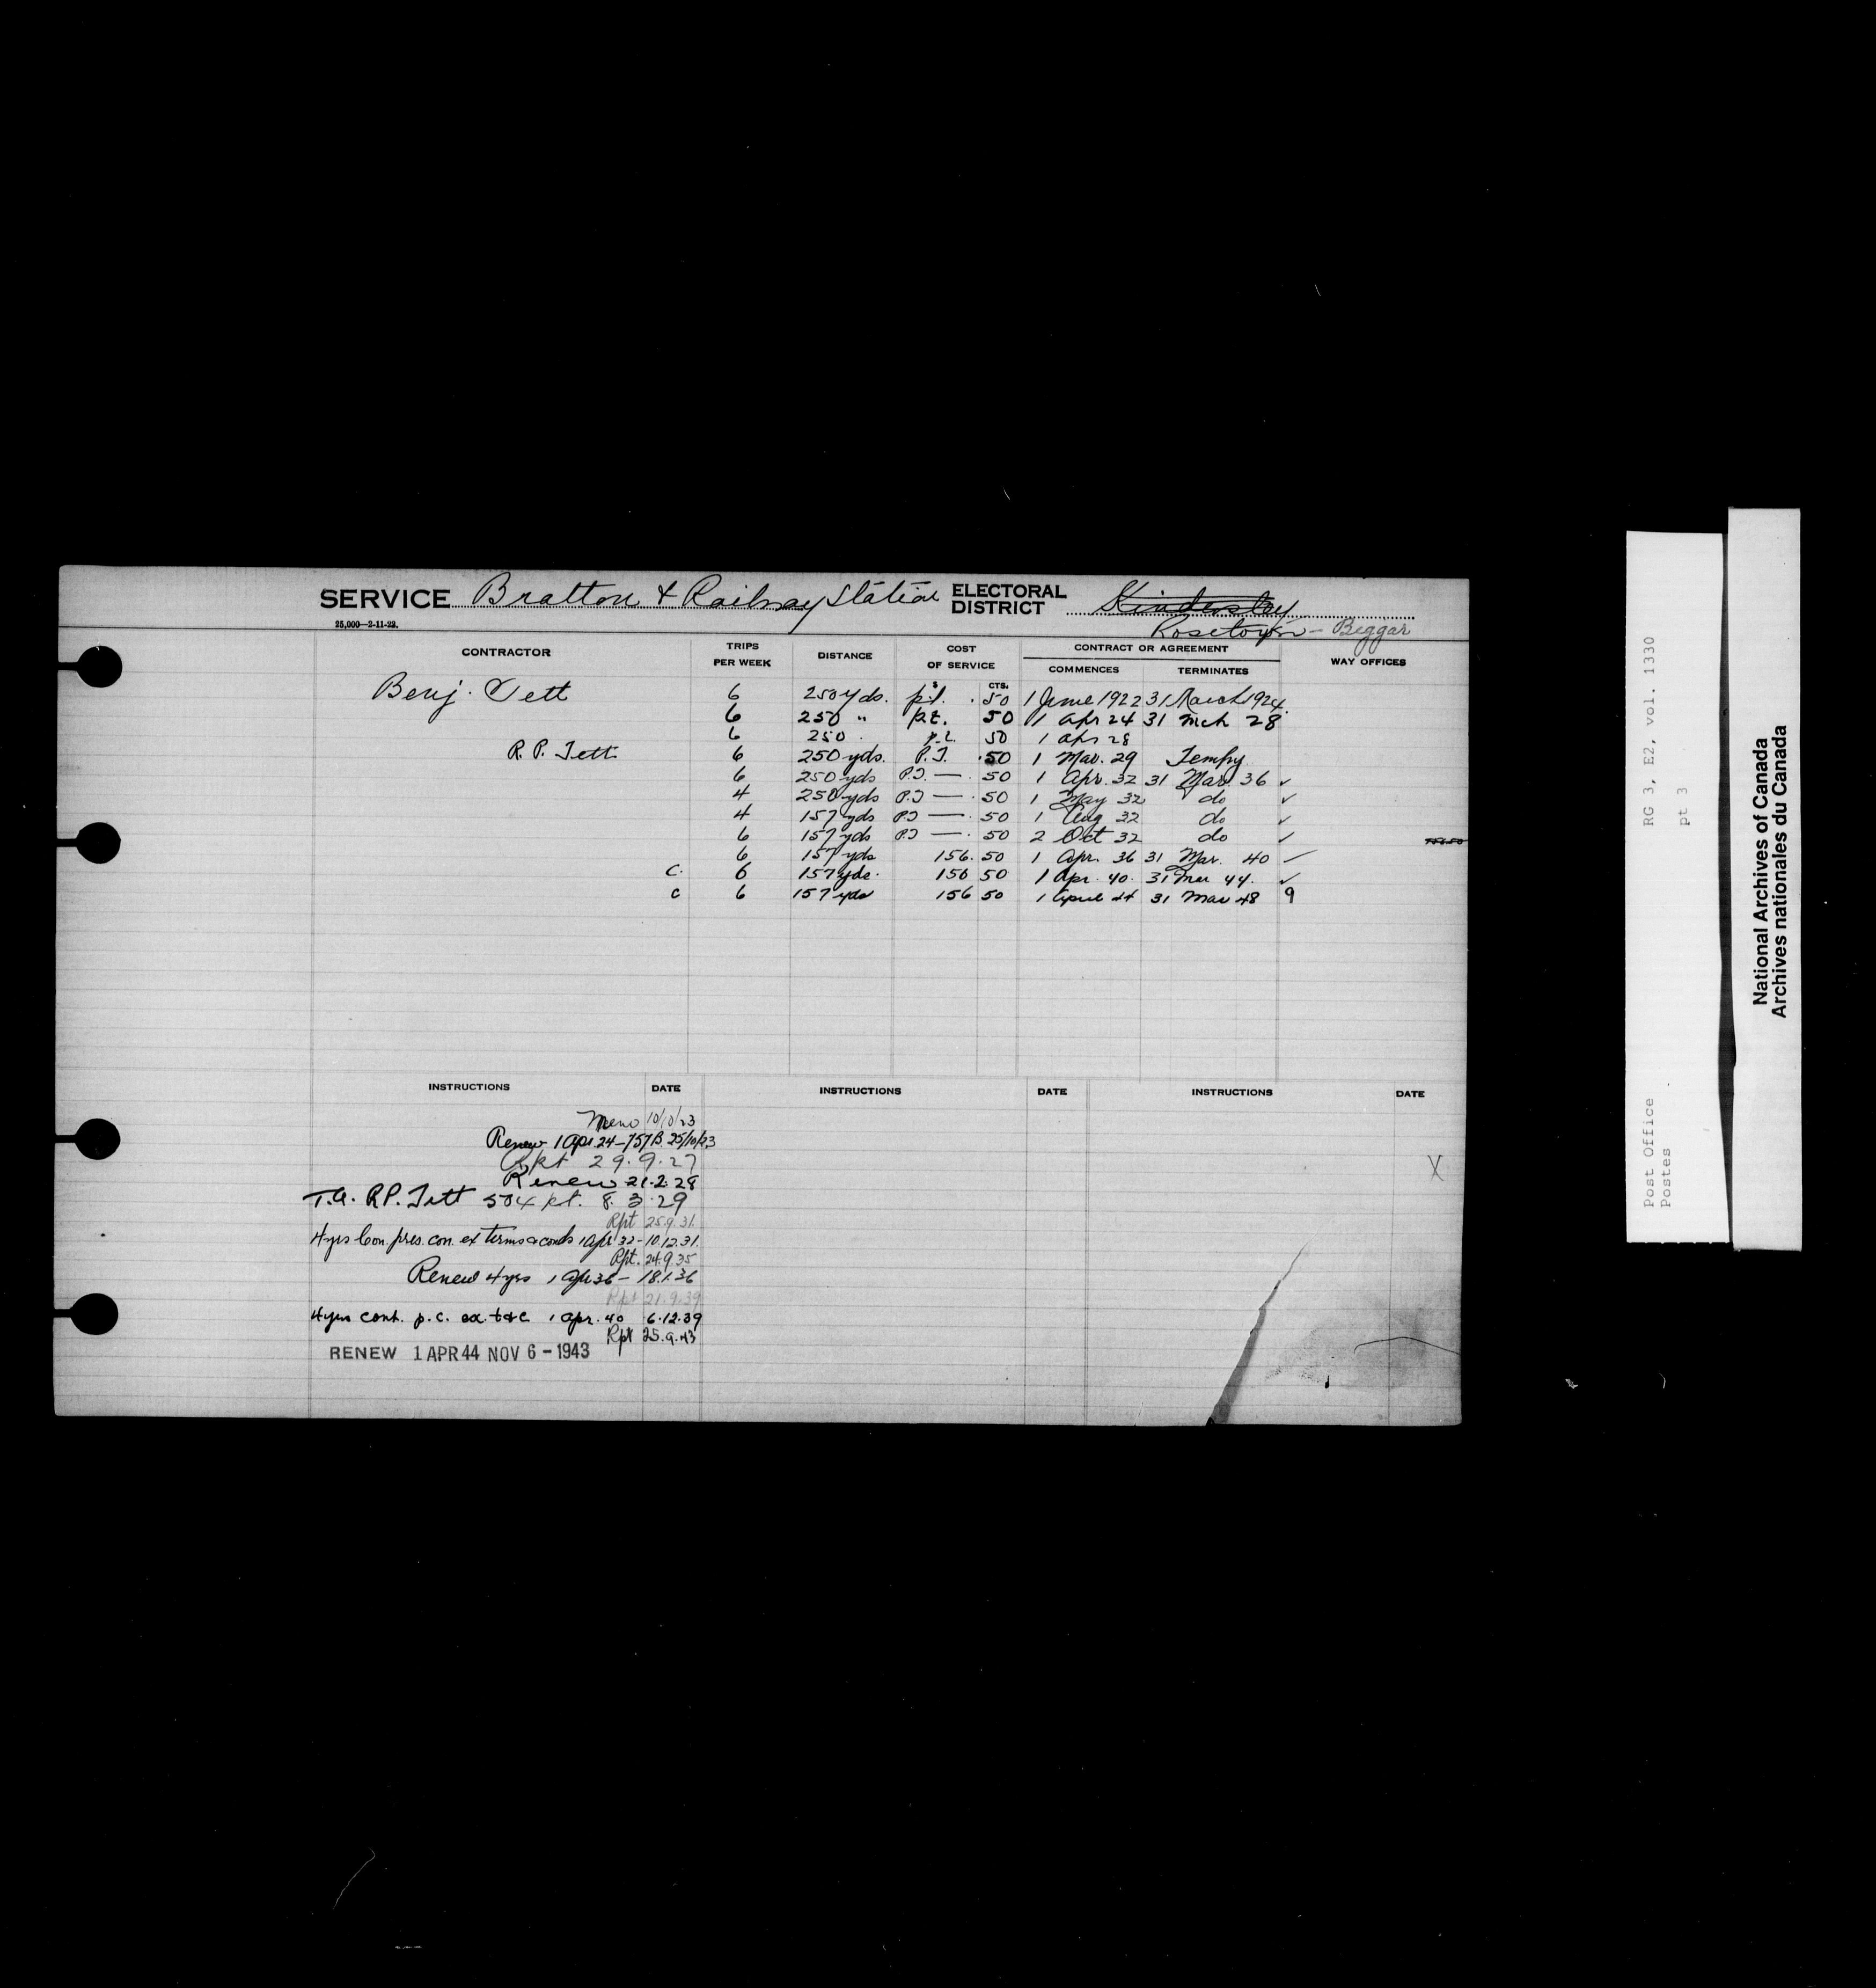 SERVICE Bratton & Railway Station ELECTORAL DISTRICT Kindersley
25,000—2-11-22. Rosetown - Beggar
CONTRACTOR TRIPS PER WEEK DISTANCE COST OF SERVICE CONTRACT OR AGREEMENT COMMENCES TERMINATES WAY OFFICES
$ CTS.
Benj. Tett 6 250 yds. p.t. .50 1 June 1922 31 March 1924.
6 250 " p.t. 50 1 Apr 24 31 Mch 28
6 250 p.t. 50 1 Apr 28
R. P. Tett 6 250 yds. P.T. .50 1 Mar. 29 Tempy
6 250 yds P.T. — .50 1 Apr. 32 31 Mar. 36 ✓
4 250 yds P.T — .50 1 May 32 do ✓
4 157 yds P.T — .50 1 Aug 32 do ✓
6 157 yds P.T — .50 2 Oct 32 do ✓ 156.50
6 157 yds 156.50 1 Apr. 36 31 Mar. 40 ✓
C. 6 157 yds. 156 50 1 Apr. 40. 31 Mar 44. ✓
C 6 157 yds 156 50 1 April 44 31 Mar 48 9
INSTRUCTIONS DATE INSTRUCTIONS DATE INSTRUCTIONS DATE
Memo 10/10/23
Renew 1 Apr. 24 – 757 B. 25/10/23
Rpt 29.9.27
Renew 21.2.28
T.A. R.P. Tett 504 pt. 8.3.29
Rpt 25.9.31.
4 yrs Con. pres. con. ex terms & conds 1 Apr 32 - 10.12.31.
Rpt. 24.9.35
Renew 4 yrs 1 Apr 36 – 18.1.36
Rpt 21.9.39
4 yrs cont. p.c. ex. t&c 1 Apr. 40 6.12.39
Rpt 25.9.43
RENEW 1 APR 44 NOV 6 - 1943
X
Post Office RG 3, E2, vol. 1330
Postes pt 3
National Archives of Canada
Archives nationales du Canada